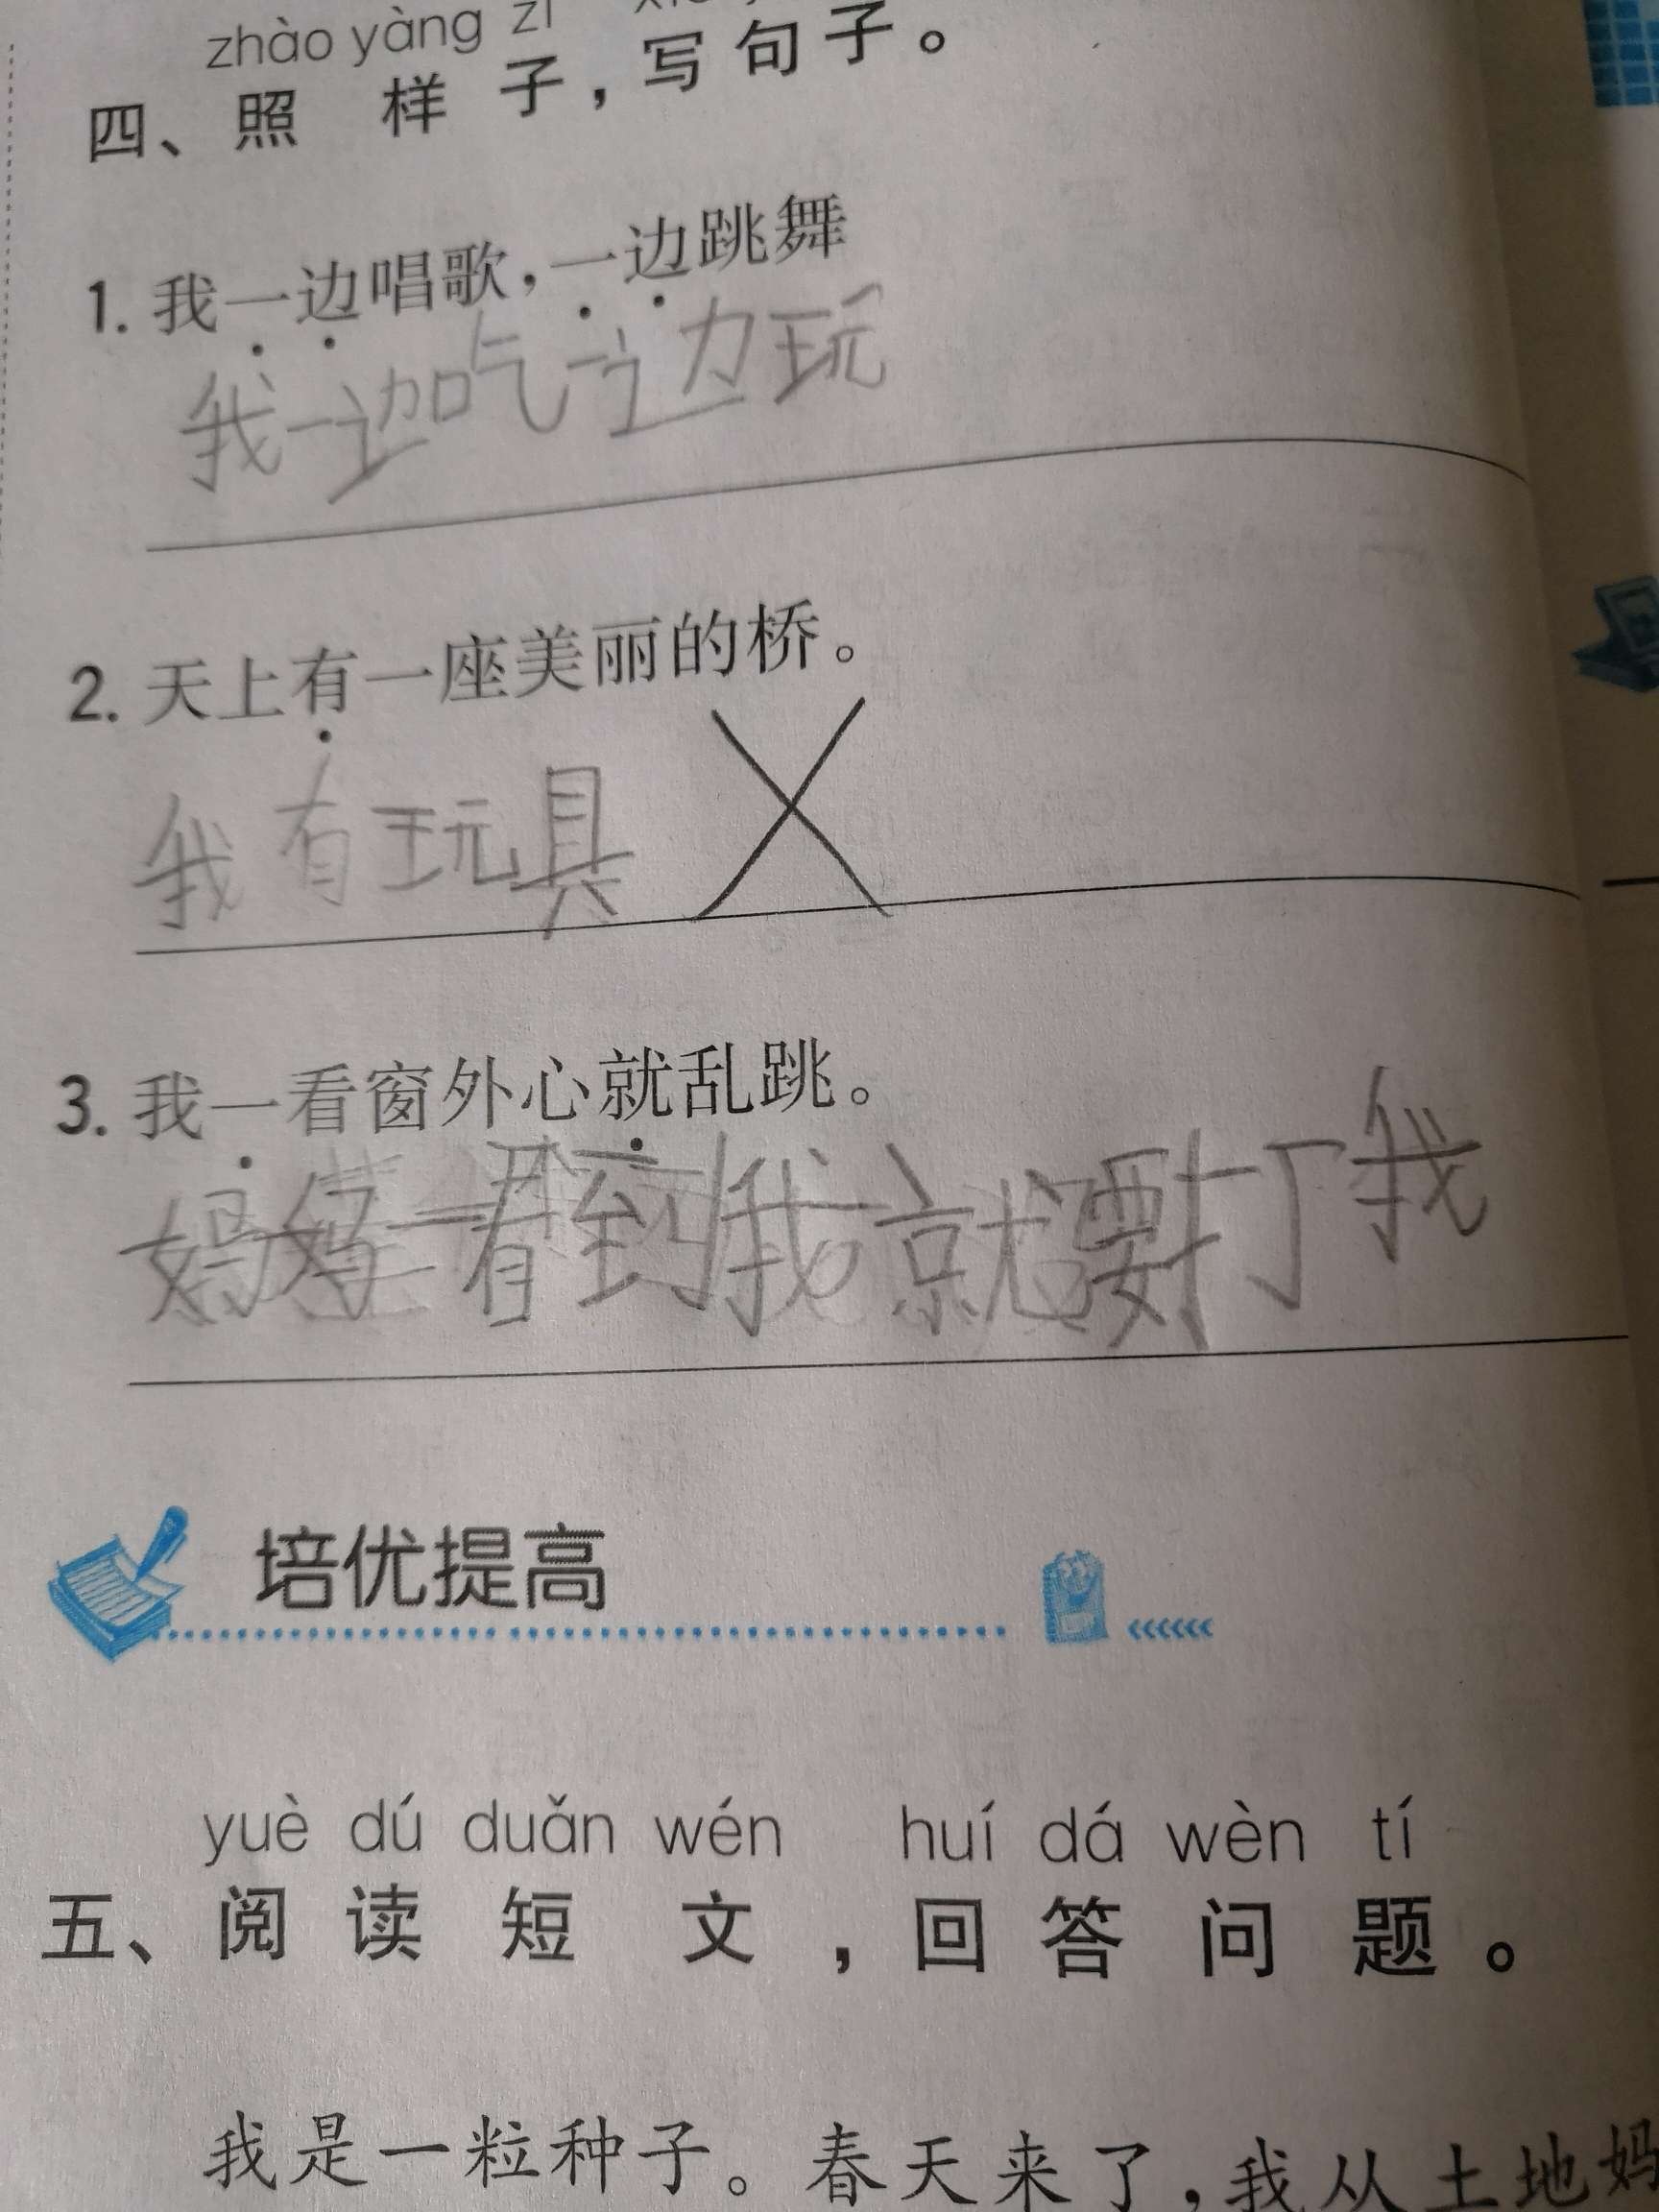 zhào yàng zǐ
四、照样子，写句子。
1. 我一边唱歌，一边跳舞
我一边吃一边玩
2. 天上有一座美丽的桥。
我有玩具
3. 我一看窗外心就乱跳。
妈妈一看到我就要打我
培优提高
yuè dú duǎn wén huí dá wèn tí
五、阅读短文，回答问题。
我是一粒种子。春天来了，我从土地妈